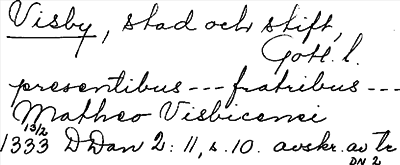 Visby, stad och stift,
Gotl. l.
presentibus --- fratribus ---
Matheo Visbicensi
13/2
1333 DDan 2: 11, s. 10. avskr. av Tr
DN 2